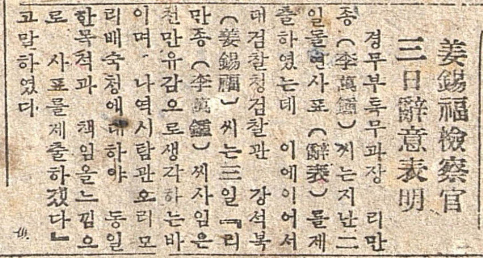 姜錫福檢察官
三日辭意表明
경무부특무과장 리만
종(李萬鍾)씨는지난二
일돌연사표(辭表)를제
출하였는데 이에이어서
대검찰청검찰관 강석복
(姜錫福)씨는三일『리
만종(李萬鍾)씨사임은
천만유감으로생각하는바
이며 나역시탐관오리모
리배숙청에대하야 동일
한목적과 책임을느낌으
로 사표를제출하겠다』
고말하였다